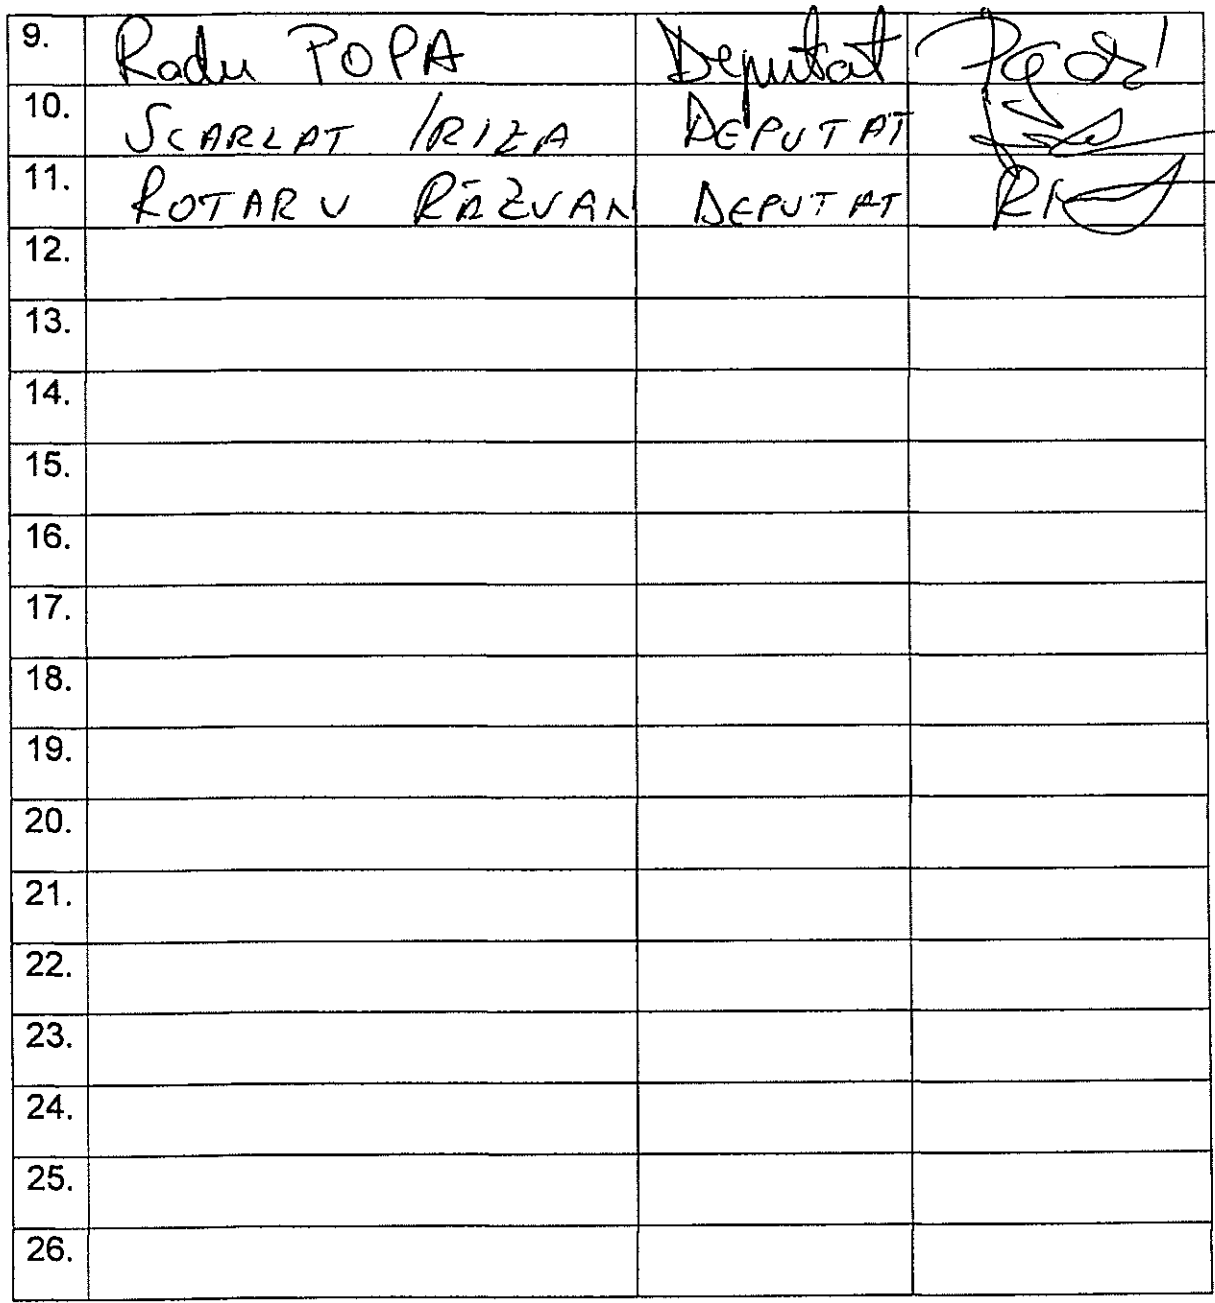 9. Radu POPA Deputat
10. SCARLAT IRIZA DEPUTAT
11. ROTARU RĂZVAN DEPUTAT
12.
13.
14.
15.
16.
17.
18.
19.
20.
21.
22.
23.
24.
25.
26.